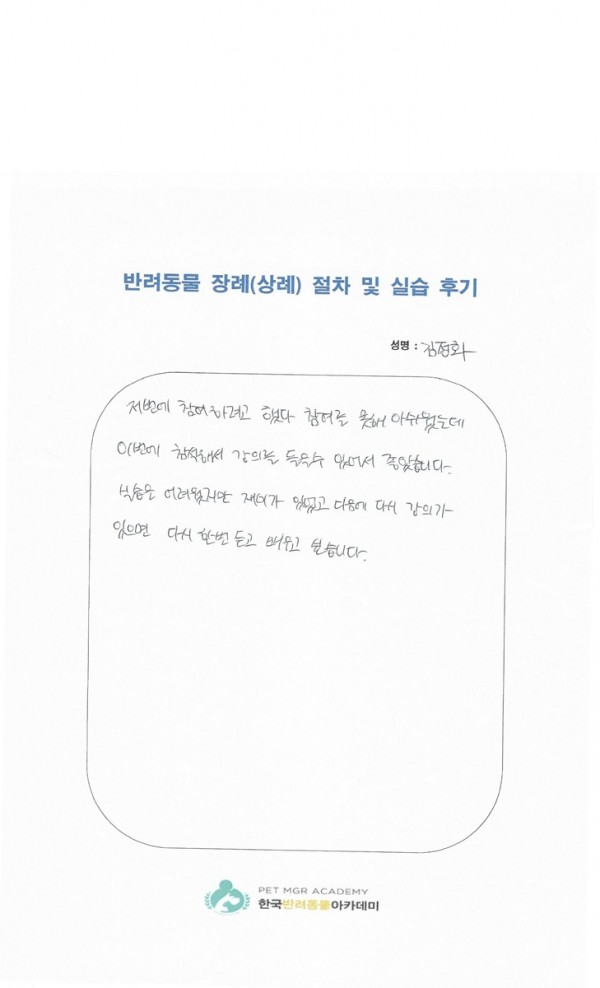 반려동물 장례(상례) 절차 및 실습 후기
성명 : 김정화
저번에 참여하려고 했다 참여를 못해 아쉬웠는데
이번에 참석해서 강의를 들을수 있어서 좋았습니다.
실습은 어려웠지만 재미가 있었고 다음에 다시 강의가
있으면 다시 한번 듣고 배우고 싶습니다.
PET MGR ACADEMY
한국반려동물아카데미